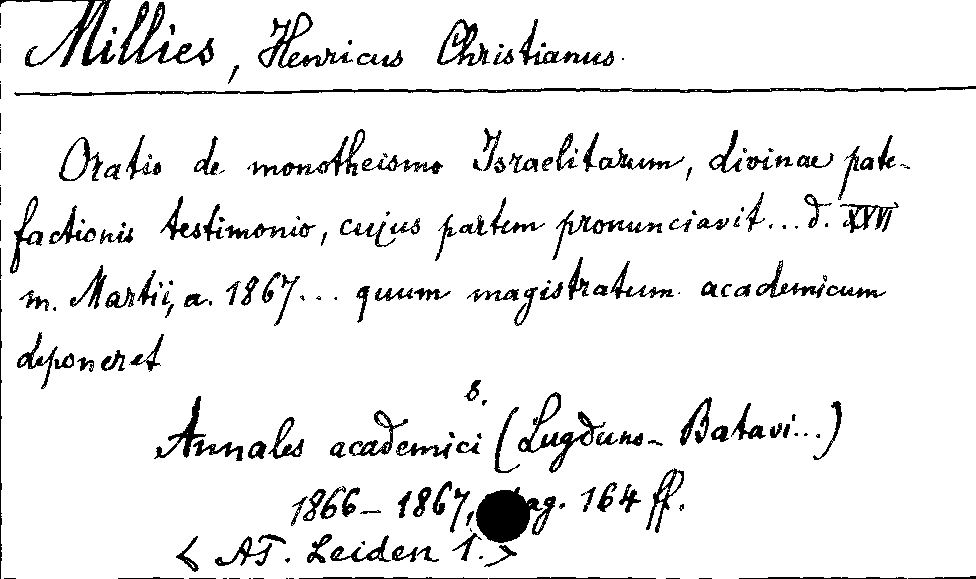 Millies, Henricus Christianus.
Oratio de monotheismo Israelitarum, divinae pate-
factionis testimonio, cujus partem pronunciavit... d. XVI
m. Martii, a. 1867... quum magistratum academicum
deponeret
s.
Annales academici (Lugduno-Batavi...)
1866-1867, 164 ff.
< AT. Leiden 1. >